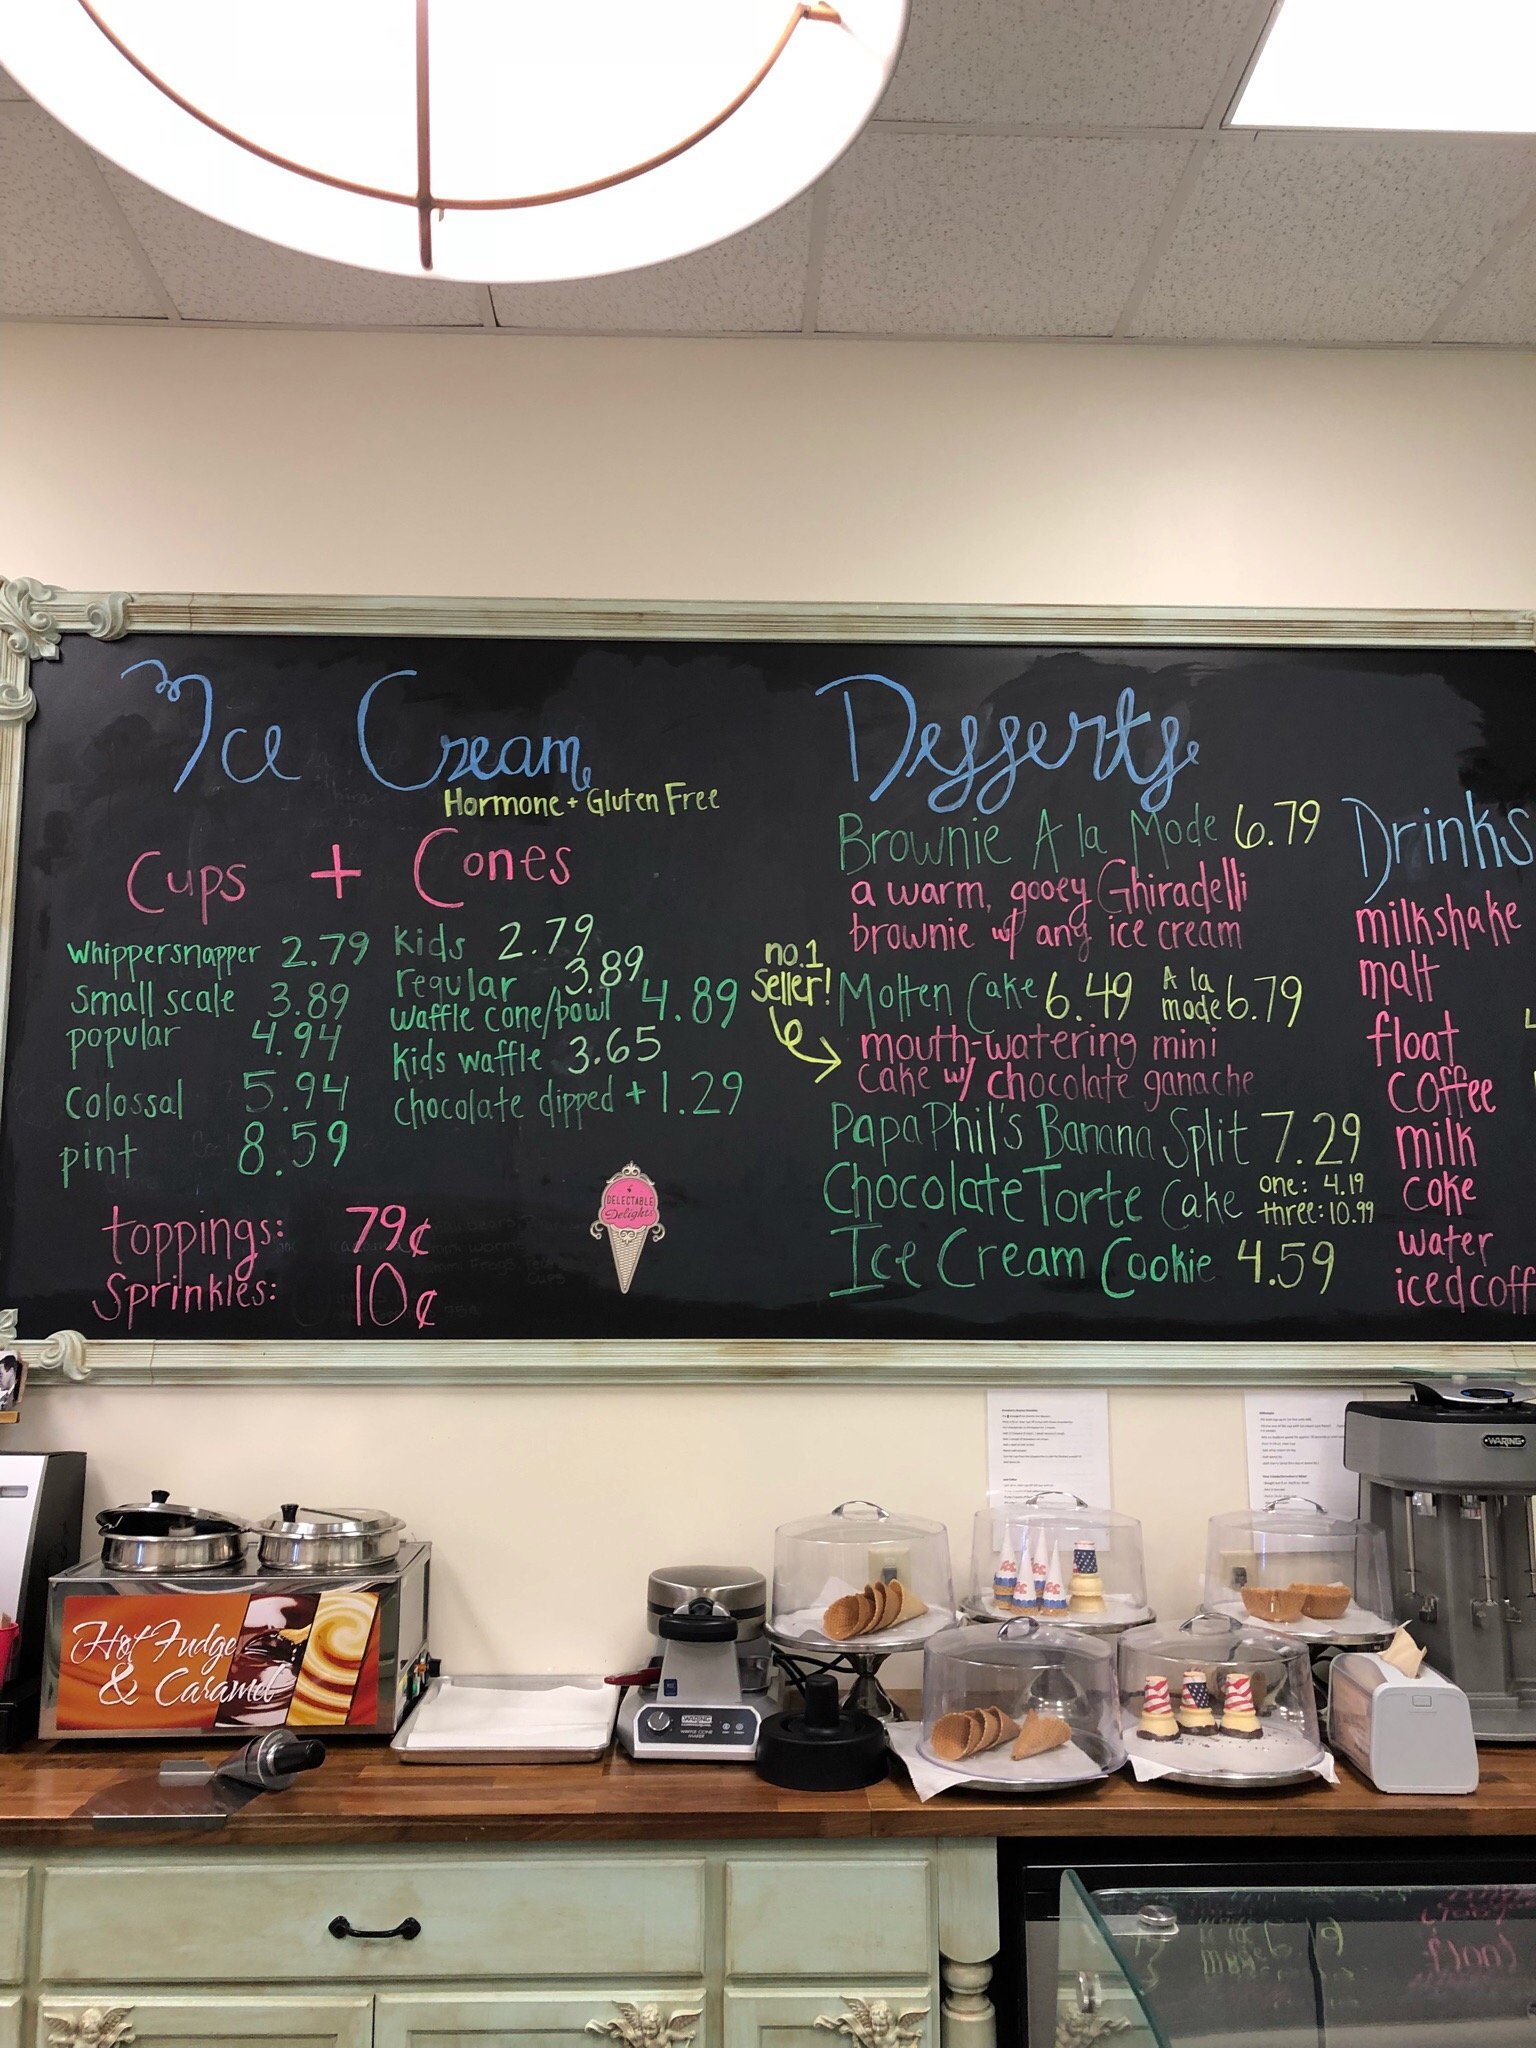 Ice Cream
Hormone + Gluten Free
Cups + Cones
Whippersnapper 2.79
small scale 3.89
popular 4.94
Colossal 5.94
pint 8.59
kids 2.79
regular 3.89
waffle cone/bowl 4.89
kids waffle 3.65
chocolate dipped + 1.29
toppings: 79¢
Sprinkles: 10¢
DELECTABLE
Delights
Desserts
Brownie A la Mode 6.79
a warm, gooey Ghiradelli
brownie w/ any ice cream
no.1
Seller!
Molten Cake 6.49 A la
mode 6.79
mouth-watering mini
cake w/ chocolate ganache
Papa Phil's Banana Split 7.29
Chocolate Torte Cake one: 4.19
three: 10.99
Ice Cream Cookie 4.59
Drinks
milkshake
malt
float
coffee
milk
coke
water
iced coff
Hot Fudge
& Caramel
WARING
WARING
WAFFLE CONE
MAKER